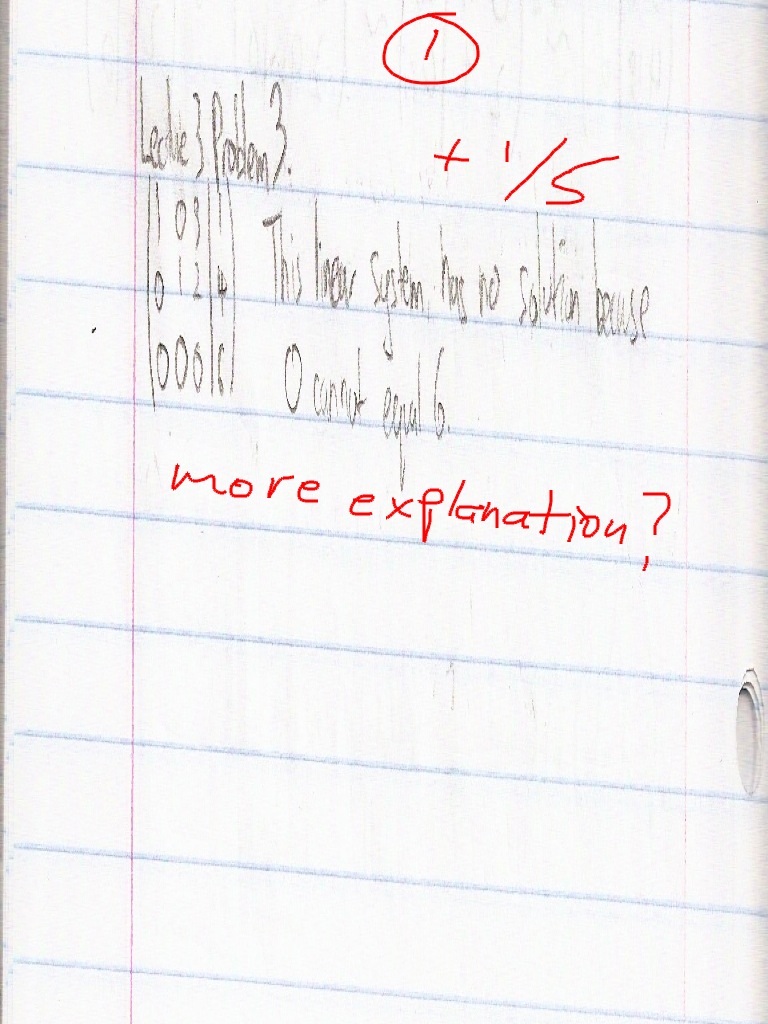 1
Lecture 3 Problem 3.
+ 1/5
1 0 3 | 1
This linear system has no solution because
0 1 2 | 4
0 0 0 | 6
0 cannot equal 6.
more explanation?